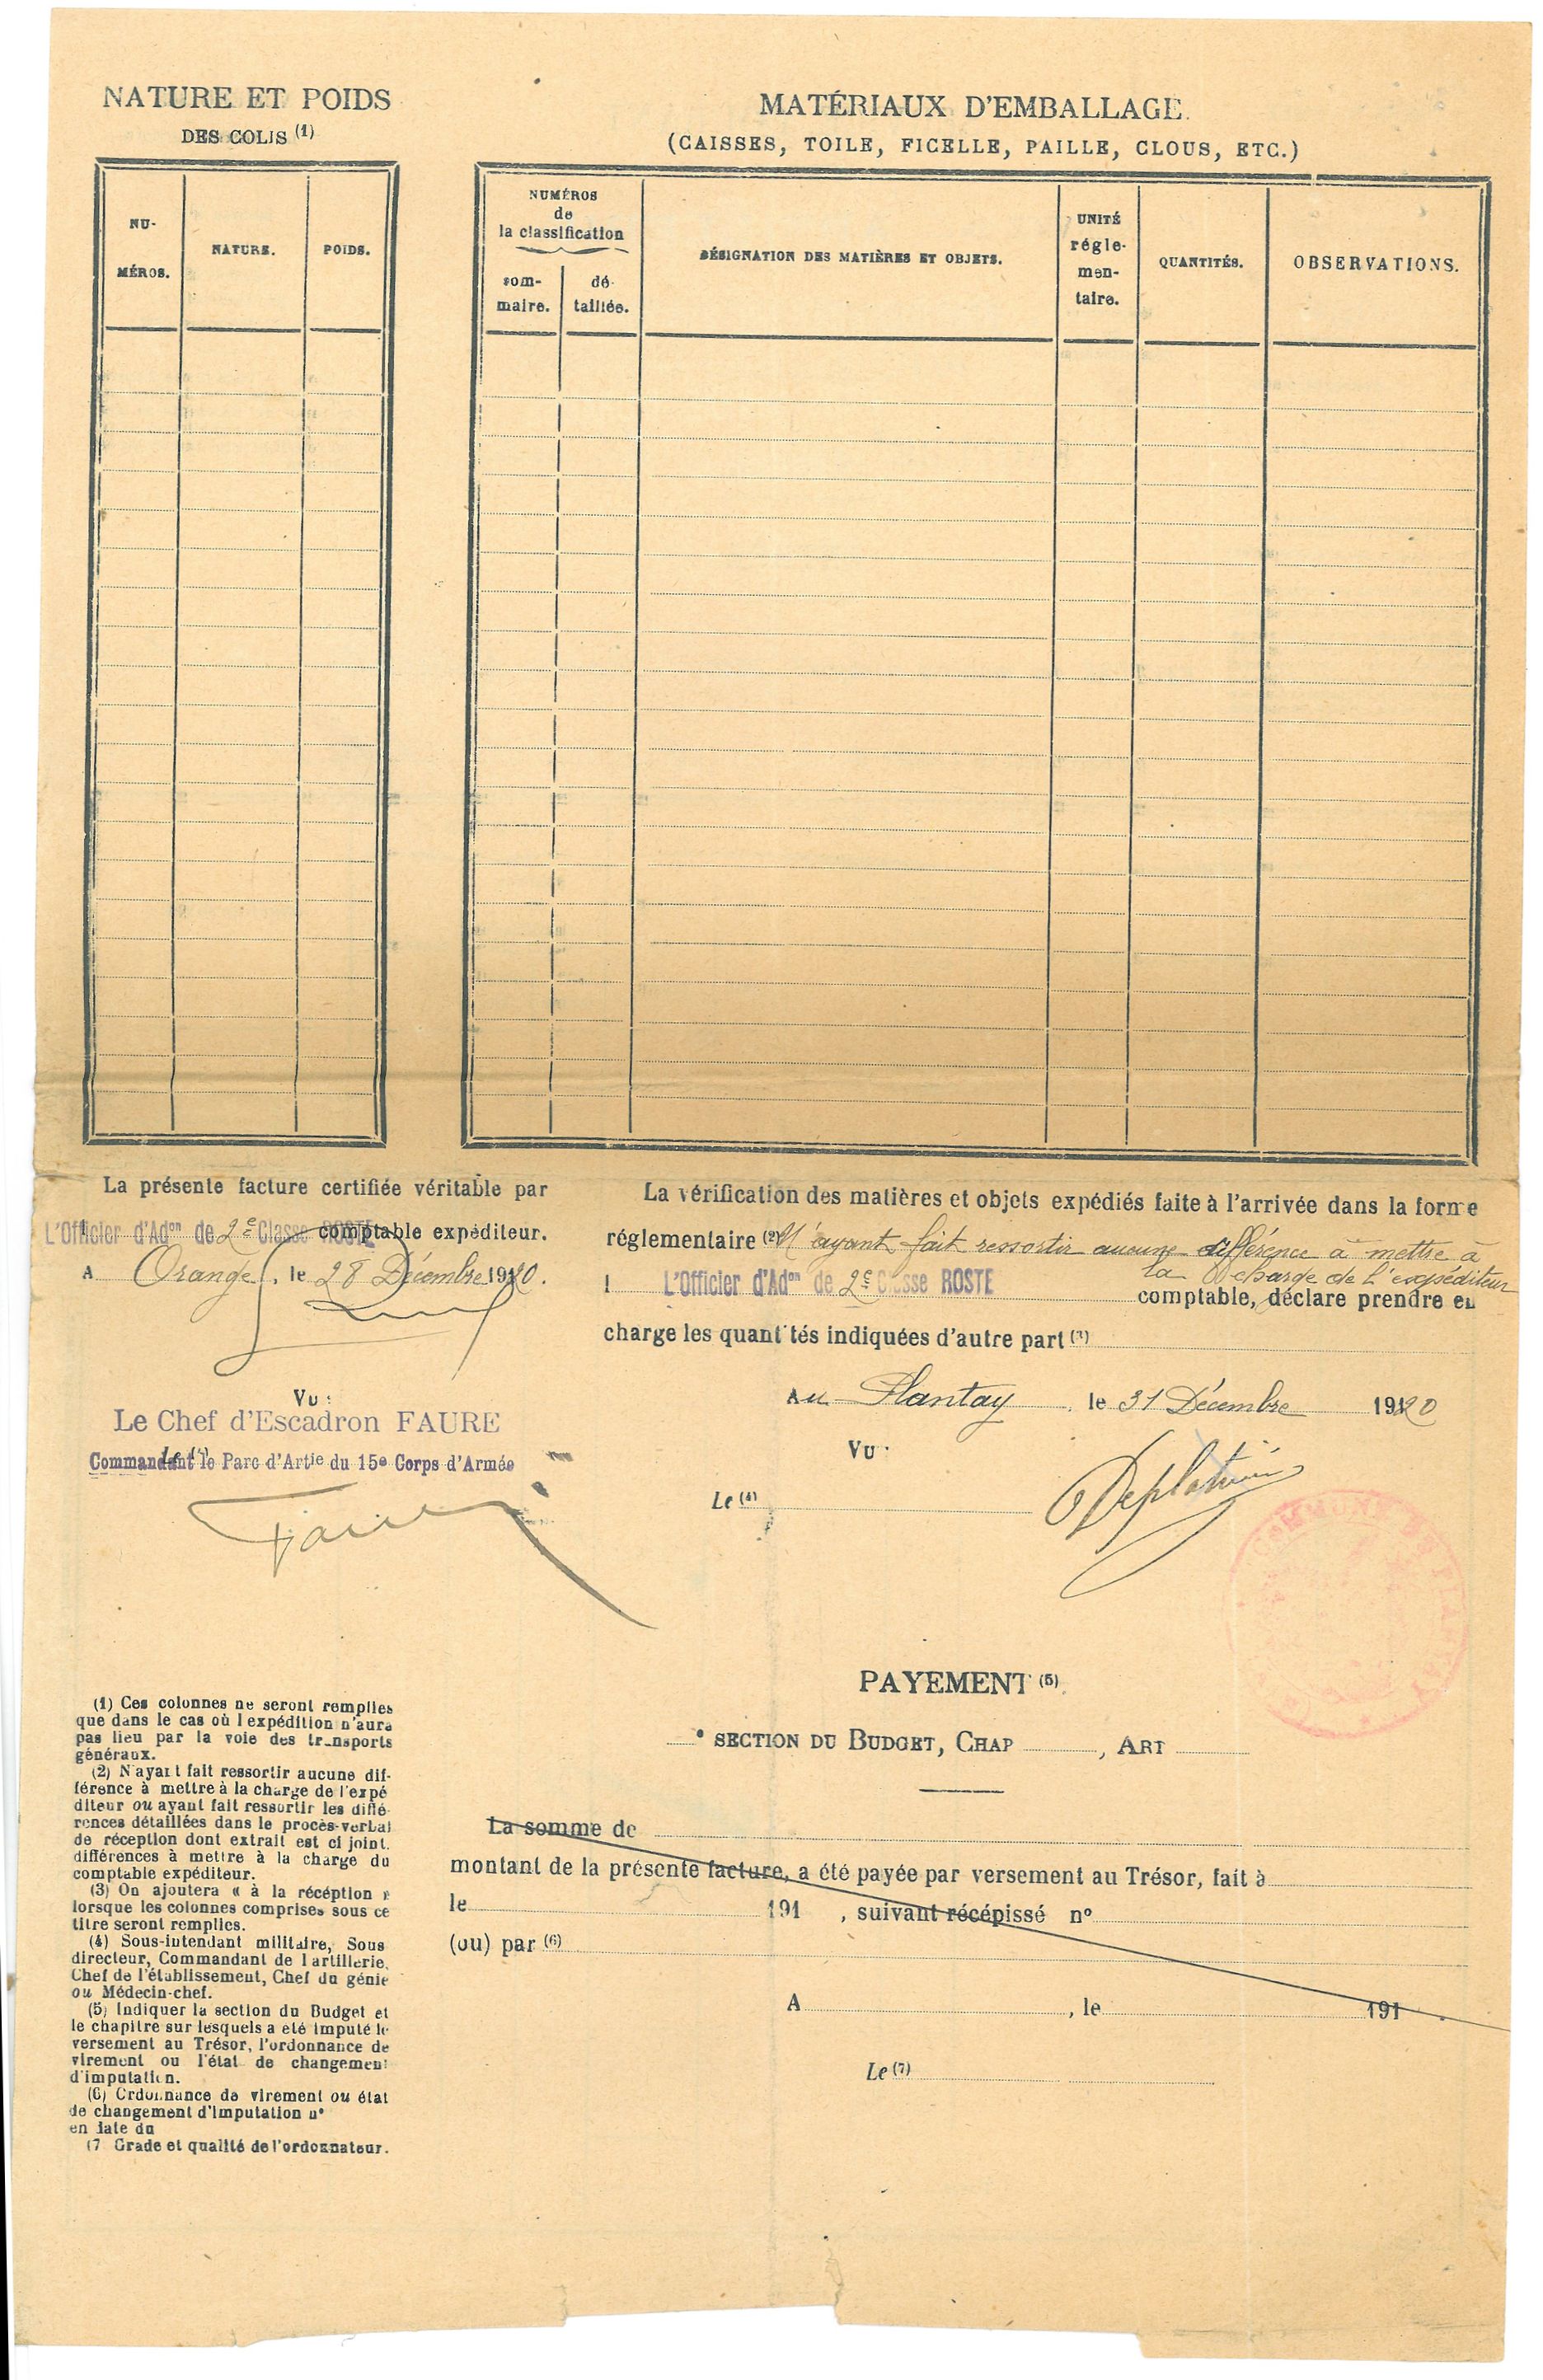 NATURE ET POIDS
DES COLIS (1)
NU-
MÉROS.
NATURE.
POIDS.
MATÉRIAUX D'EMBALLAGE.
(CAISSES, TOILE, FICELLE, PAILLE, CLOUS, ETC.)
NUMÉROS
de
la classification
som-
maire.
dé-
taillée.
DÉSIGNATION DES MATIÈRES ET OBJETS.
UNITÉ
régle-
men-
taire.
QUANTITÉS.
OBSERVATIONS.
La présente facture certifiée véritable par
L'Officier d'Adon de 2e Classe ROSTE comptable expéditeur.
A Orange, le 28 Décembre 1920.
Vu :
Le Chef d'Escadron FAURE
Le (4)
Commandant le Parc d'Artie du 15e Corps d'Armée
Faure
La vérification des matières et objets expédiés faite à l'arrivée dans la forme
réglementaire (2) N'ayant fait ressortir aucune différence à mettre à
la charge de l'expéditeur
l L'Officier d'Adon de 2e Classe ROSTE comptable, déclare prendre en
charge les quantités indiquées d'autre part (3)
Au Plantay, le 31 Décembre 1920
Vu :
Le (4)
COMMUNE DU PLANTAY
PAYEMENT (5).
e SECTION DU BUDGET, CHAP , ART
La somme de
montant de la présente facture, a été payée par versement au Trésor, fait à
le 191 , suivant récépissé n°
(ou) par (6)
A , le 191 .
Le (7)
(1) Ces colonnes ne seront remplies
que dans le cas où l'expédition n'aura
pas lieu par la voie des transports
généraux.
(2) N'ayant fait ressortir aucune dif-
férence à mettre à la charge de l'expé
diteur ou ayant fait ressortir les diffé-
rences détaillées dans le procès-verbal
de réception dont extrait est ci joint.
différences à mettre à la charge du
comptable expéditeur.
(3) On ajoutera « à la récéption »
lorsque les colonnes comprises sous ce
titre seront remplies.
(4) Sous-intendant militaire, Sous
directeur, Commandant de l'artillerie,
Chef de l'établissement, Chef du génie
ou Médecin-chef.
(5) Indiquer la section du Budget et
le chapitre sur lesquels a été imputé le
versement au Trésor, l'ordonnance de
virement ou l'état de changement
d'imputation.
(6) Ordonnance de virement ou état
de changement d'imputation n°
en date du
(7 Grade et qualité de l'ordonnateur.